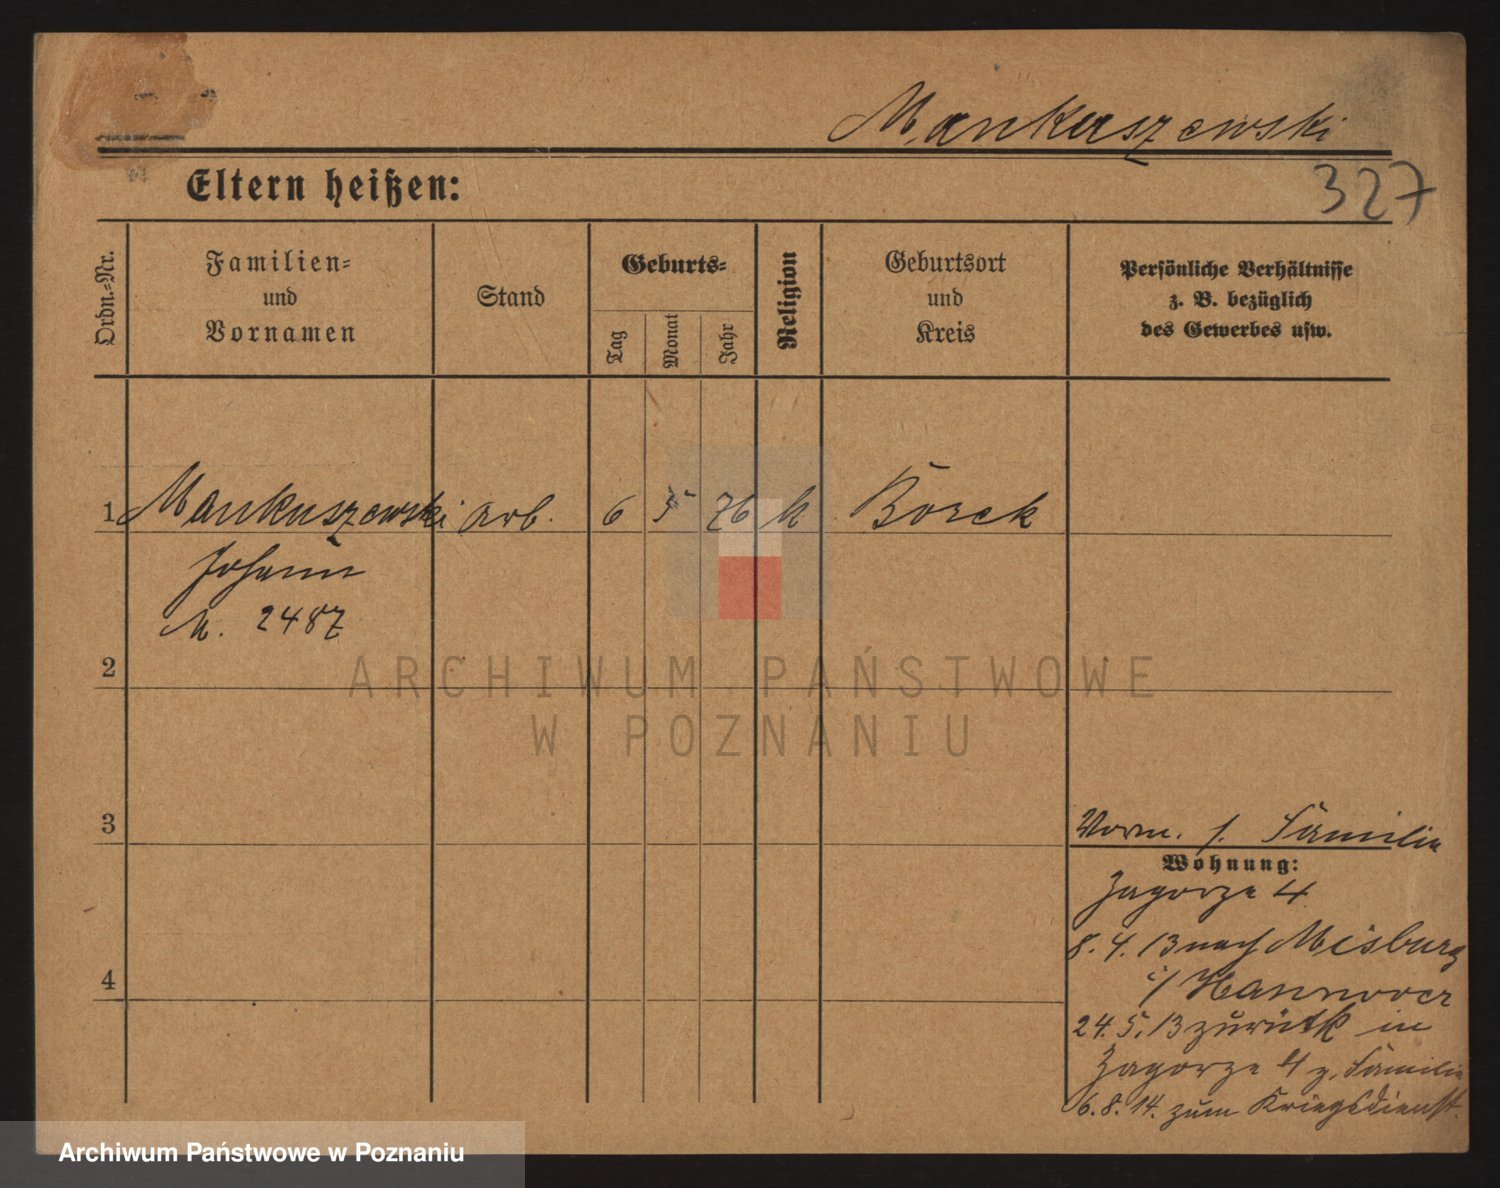 Mankuszewski
327
Eltern heißen:
Ordn.-Nr.
Familien-
und
Vornamen
Stand
Geburts-
Tag
Monat
Jahr
Religion
Geburtsort
und
Kreis
Persönliche Verhältnisse
z. B. bezüglich
des Gewerbes usw.
1 Mankuszewski Arb. 6 5 76 k Borek
Johann
M. 2487
2
3
4
Vorm. s. Familie
Wohnung:
Zagorze 4
8.4.13 nach Misburg
i/ Hannover
24.5.13 zurück in
Zagorze 4 z. Familie
6.8.14. zum Kriegsdienst.
ARCHIWUM PAŃSTWOWE
W POZNANIU
Archiwum Państwowe w Poznaniu